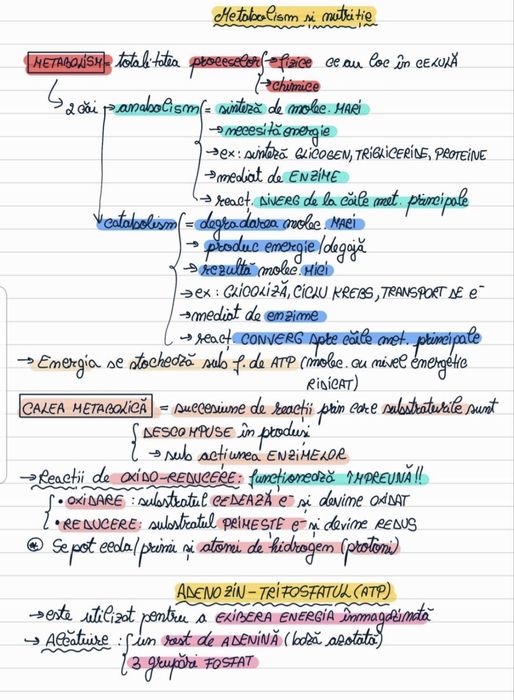 Metabolism și nutriție
METABOLISM = totalitatea proceselor fizice ce au loc în CELULĂ
→ chimice
2 căi → anabolism = sinteză de molec. MARI
→ necesită energie
→ ex: sinteză GLICOGEN, TRIGLICERIDE, PROTEINE
→ mediat de ENZIME
→ react. DIVERG de la căile met. principale
catabolism = degradarea molec. MARI
→ produc energie/degajă
→ rezultă molec. MICI
→ ex: GLICOLIZĂ, CICLU KREBS, TRANSPORT DE e⁻
→ mediat de enzime
→ react. CONVERG spre căile met. principale
→ Energia se stochează sub f. de ATP (molec. cu nivel energetic
RIDICAT)
CALEA METABOLICĂ = succesiune de reacții prin care substraturile sunt
DESCOMPUSE în produși
→ sub acțiunea ENZIMELOR
→ Reacții de OXIDO-REDUCERE: funcționează ÎMPREUNĂ!!
• OXIDARE: substratul CEDEAZĂ e⁻ și devine OXIDAT
• REDUCERE: substratul PRIMEȘTE e⁻ și devine REDUS
* Se pot ceda/primi și atomi de hidrogen (protoni)
ADENOZIN-TRIFOSFATUL (ATP)
→ este utilizat pentru a ELIBERA ENERGIA înmagazinată
→ Alcătuire: un rest de ADENINĂ (bază azotată)
3 grupări FOSFAT